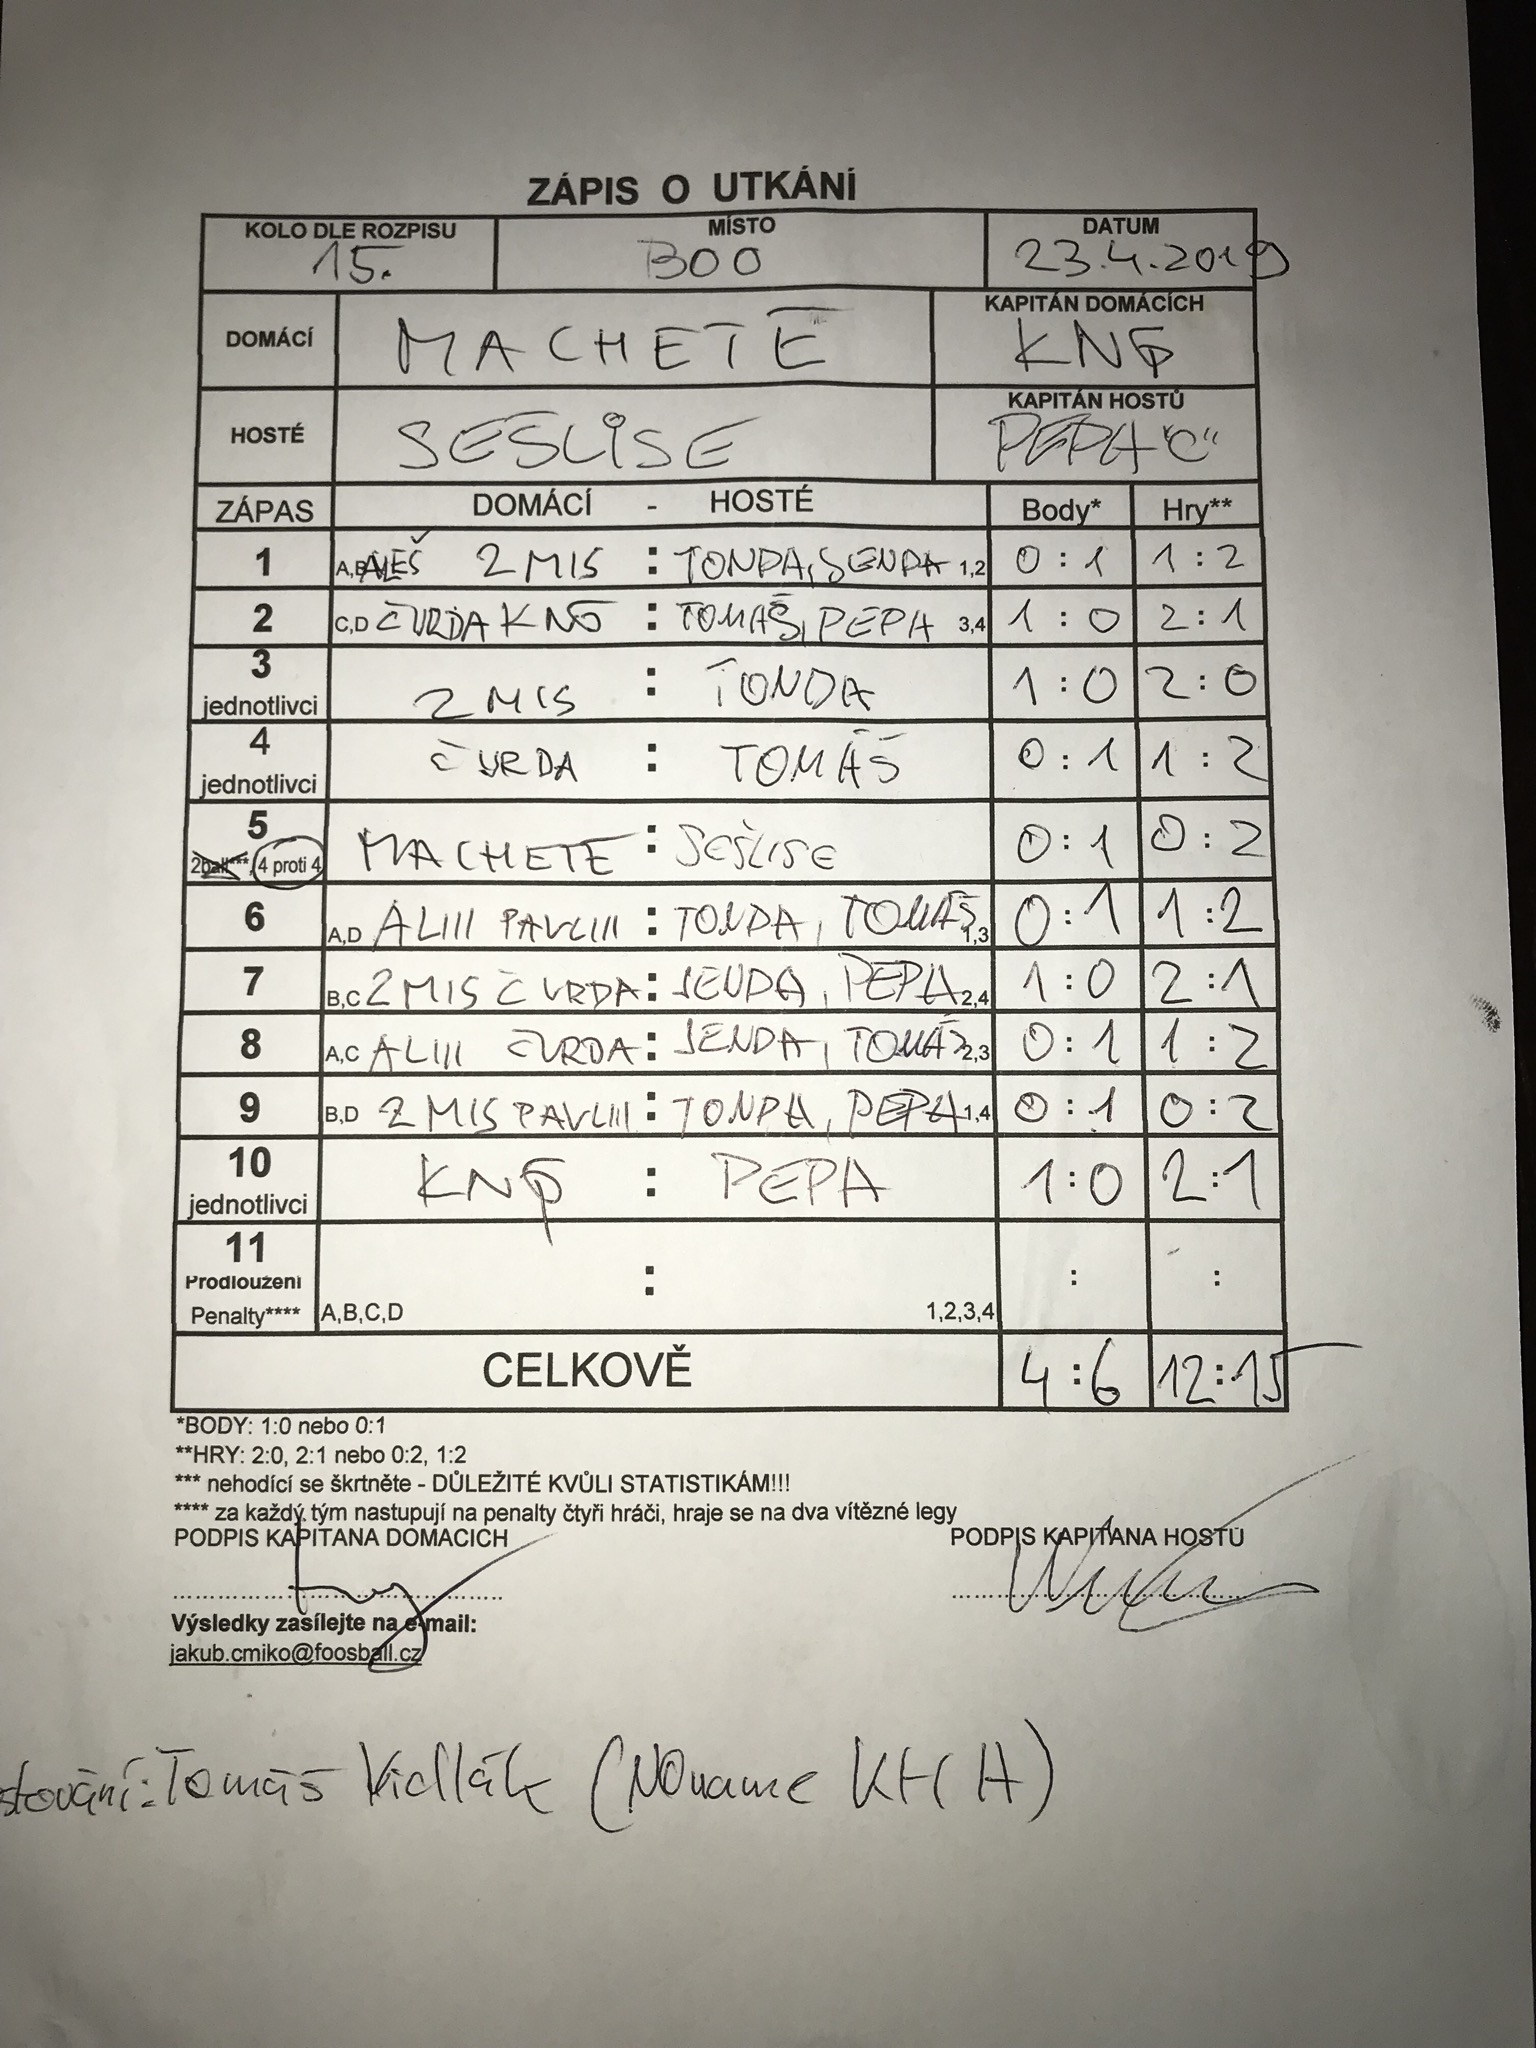 ZÁPIS O UTKÁNÍ
KOLO DLE ROZPISU MÍSTO DATUM
15. BOO 23.4.2019
DOMÁCÍ MACHETE KAPITÁN DOMÁCÍCH
HOSTÉ SEŠLÍSE KAPITÁN HOSTŮ
PEPA "C"
ZÁPAS DOMÁCÍ - HOSTÉ Body* Hry**
1 A,B ALEŠ 2MIS : TONDA, JENDA 1,2 0:1 1:2
2 C,D ČVRDA : TOMÁŠ, PEPA 3,4 1:0 2:1
3 jednotlivci 2MIS : TONDA 1:0 2:0
4 jednotlivci ČVRDA : TOMÁŠ 0:1 1:2
5 2ball***, 4 proti 4 MACHETE : SEŠLISE 0:1 0:2
6 A,D ALIII PAVLIII : TONDA, TOMÁŠ 1,3 0:1 1:2
7 B,C 2MIS ČVRDA : JENDA, PEPA 2,4 1:0 2:1
8 A,C ALIII ČVRDA : JENDA, TOMÁŠ 2,3 0:1 1:2
9 B,D 2MIS PAVLIII : TONDA, PEPA 1,4 0:1 0:2
10 jednotlivci : PEPA 1:0 2:1
11 Prodloužení Penalty**** A,B,C,D : 1,2,3,4 : :
CELKOVĚ 4:6 12:15
*BODY: 1:0 nebo 0:1
**HRY: 2:0, 2:1 nebo 0:2, 1:2
*** nehodící se škrtněte - DŮLEŽITÉ KVŮLI STATISTIKÁM!!!
**** za každý tým nastupují na penalty čtyři hráči, hraje se na dva vítězné legy
PODPIS KAPITÁNA DOMÁCÍCH PODPIS KAPITÁNA HOSTŮ
Výsledky zasílejte na e-mail:
jakub.cmiko@foosball.cz
stování: Tomáš Vidlák (NOname KH A)